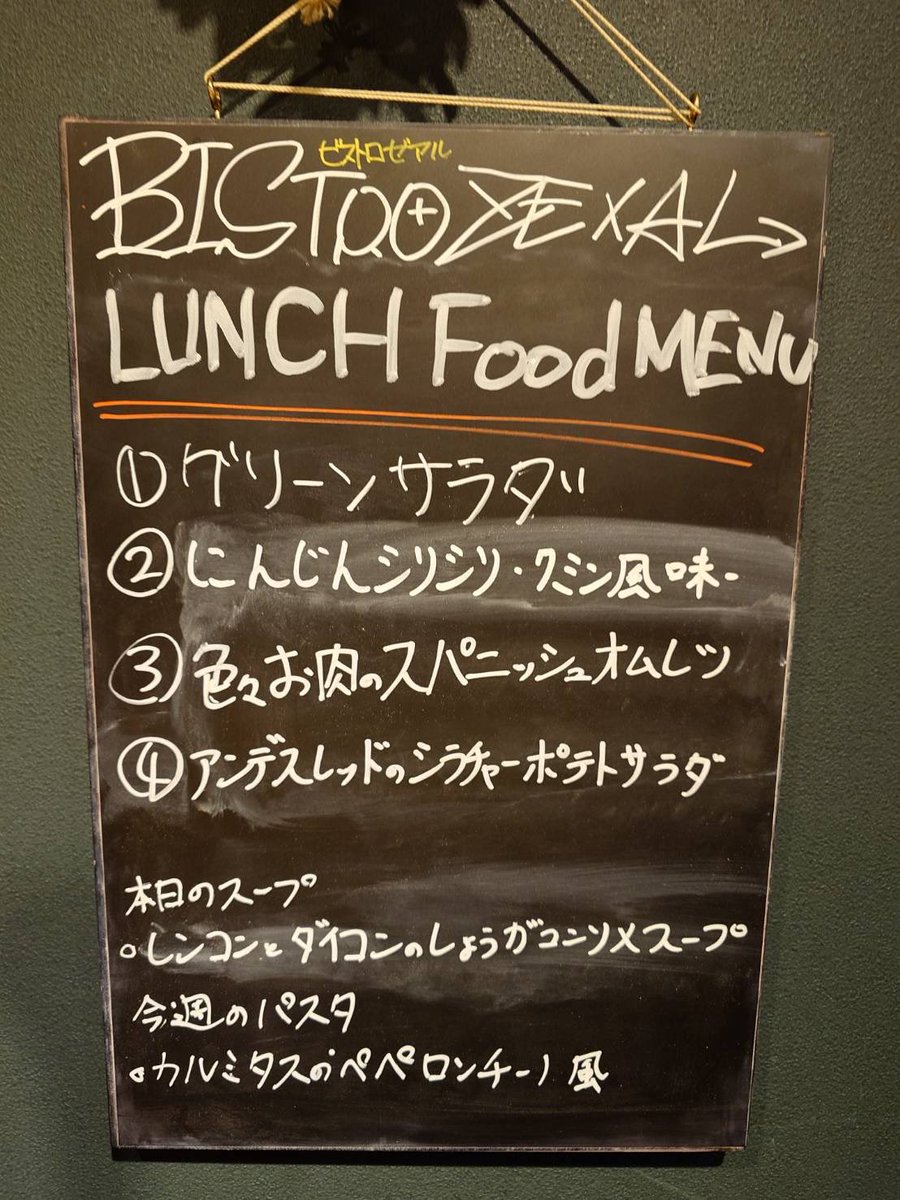 ビストロゼアル
BISTRO ZEXAL
LUNCH Food MENU
① グリーンサラダ
② にんじんシリシリ・クミン風味-
③ 色々お肉のスパニッシュオムレツ
④ アンデスレッドのシラチャーポテトサラダ
本日のスープ
。レンコンとダイコンのしょうがコンソメスープ
今週のパスタ
。カルミタスのペペロンチーノ風